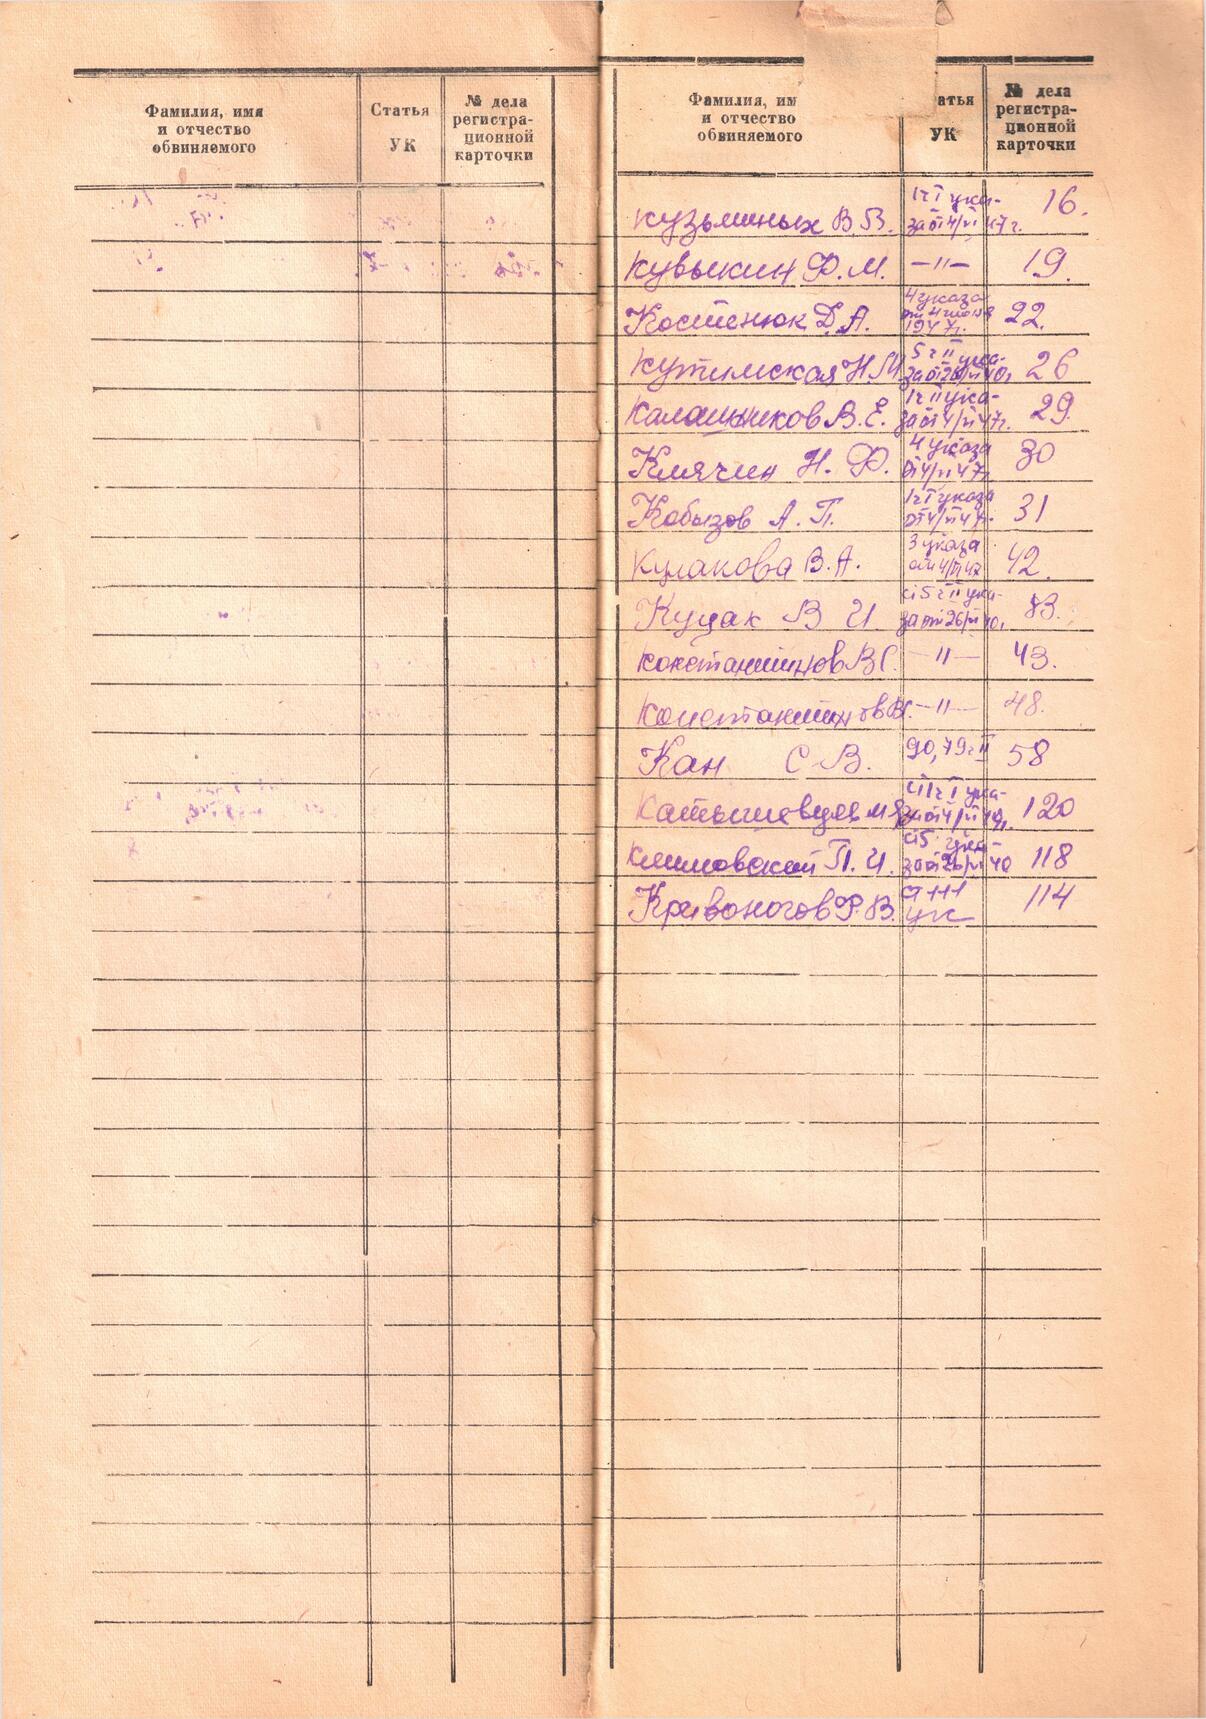 Фамилия, имя
и отчество
обвиняемого
Статья
УК
№ дела
регистра-
ционной
карточки
Фамилия, им
и отчество
обвиняемого
атья
УК
№ дела
регистра-
ционной
карточки
Кузьминых В.В. 1ч I ука- 16.
за от 4/VI 47 г.
Кувыкин Ф.М. —"— 19.
Костенюк Д.А. 4 указа 22.
от 4 июня
1947г.
Кутимская Н.М. 5 ч II ука- 26
за от 26/VI 40г.
Калашников В.Е. 1ч II ука- 29.
за от 4/VI 47г.
Клячин Н. Ф. 4 указа 30
от 4/VI 47г.
Кобызов А. П. 1ч I указа 31
от 4/VI 47г.
Кулакова В.А. 3 указа 42.
от 4/VI 47
Куцак В И ст 5 ч II ука- 83.
за от 26/VI 40г.
Константинов В С. —"— 43.
Константинов В С. —"— 48.
Кан С В. 90, 79 ч II 58
ст 1ч I ука- 120
за от 4/VI
Климовский П. И. ст 5 ука- 118
за от 26/VI 40
Кривоногов Ф. В. ст 111 114
УК